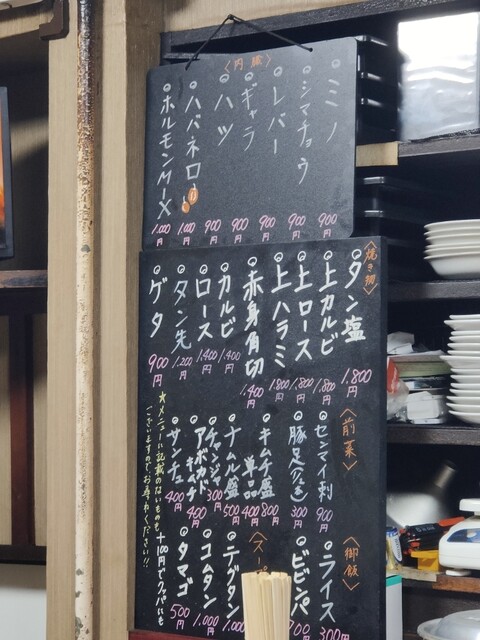 〈内臓〉
ミノ 900円
シマチョウ 900円
レバー 900円
ギャラ 900円
ハツ 900円
ハバネロ 1,000円
ホルモンMIX 1,000円
〈焼き網〉
タン塩 1,800円
上カルビ 1,800円
上ロース 1,800円
上ハラミ 1,800円
赤身角切 1,400円
カルビ 1,400円
ロース 1,400円
タン先 1,200円
ゲタ 900円
〈前菜〉
センマイ刺 900円
豚足(ハーフ) 300円
キムチ盛 800円
単品 400円
ナムル盛 500円
チャンジャ 300円
アボカドキムチ 400円
サンチュ 400円
〈御飯〉
ライス 300円
ビビンバ 700円
〈スー
テグタン 1,000
コムタン 1,000円
タマゴ 500円
★メニューに記載のないものも
ございますので、お尋ねください!!
+100円でクッパにも